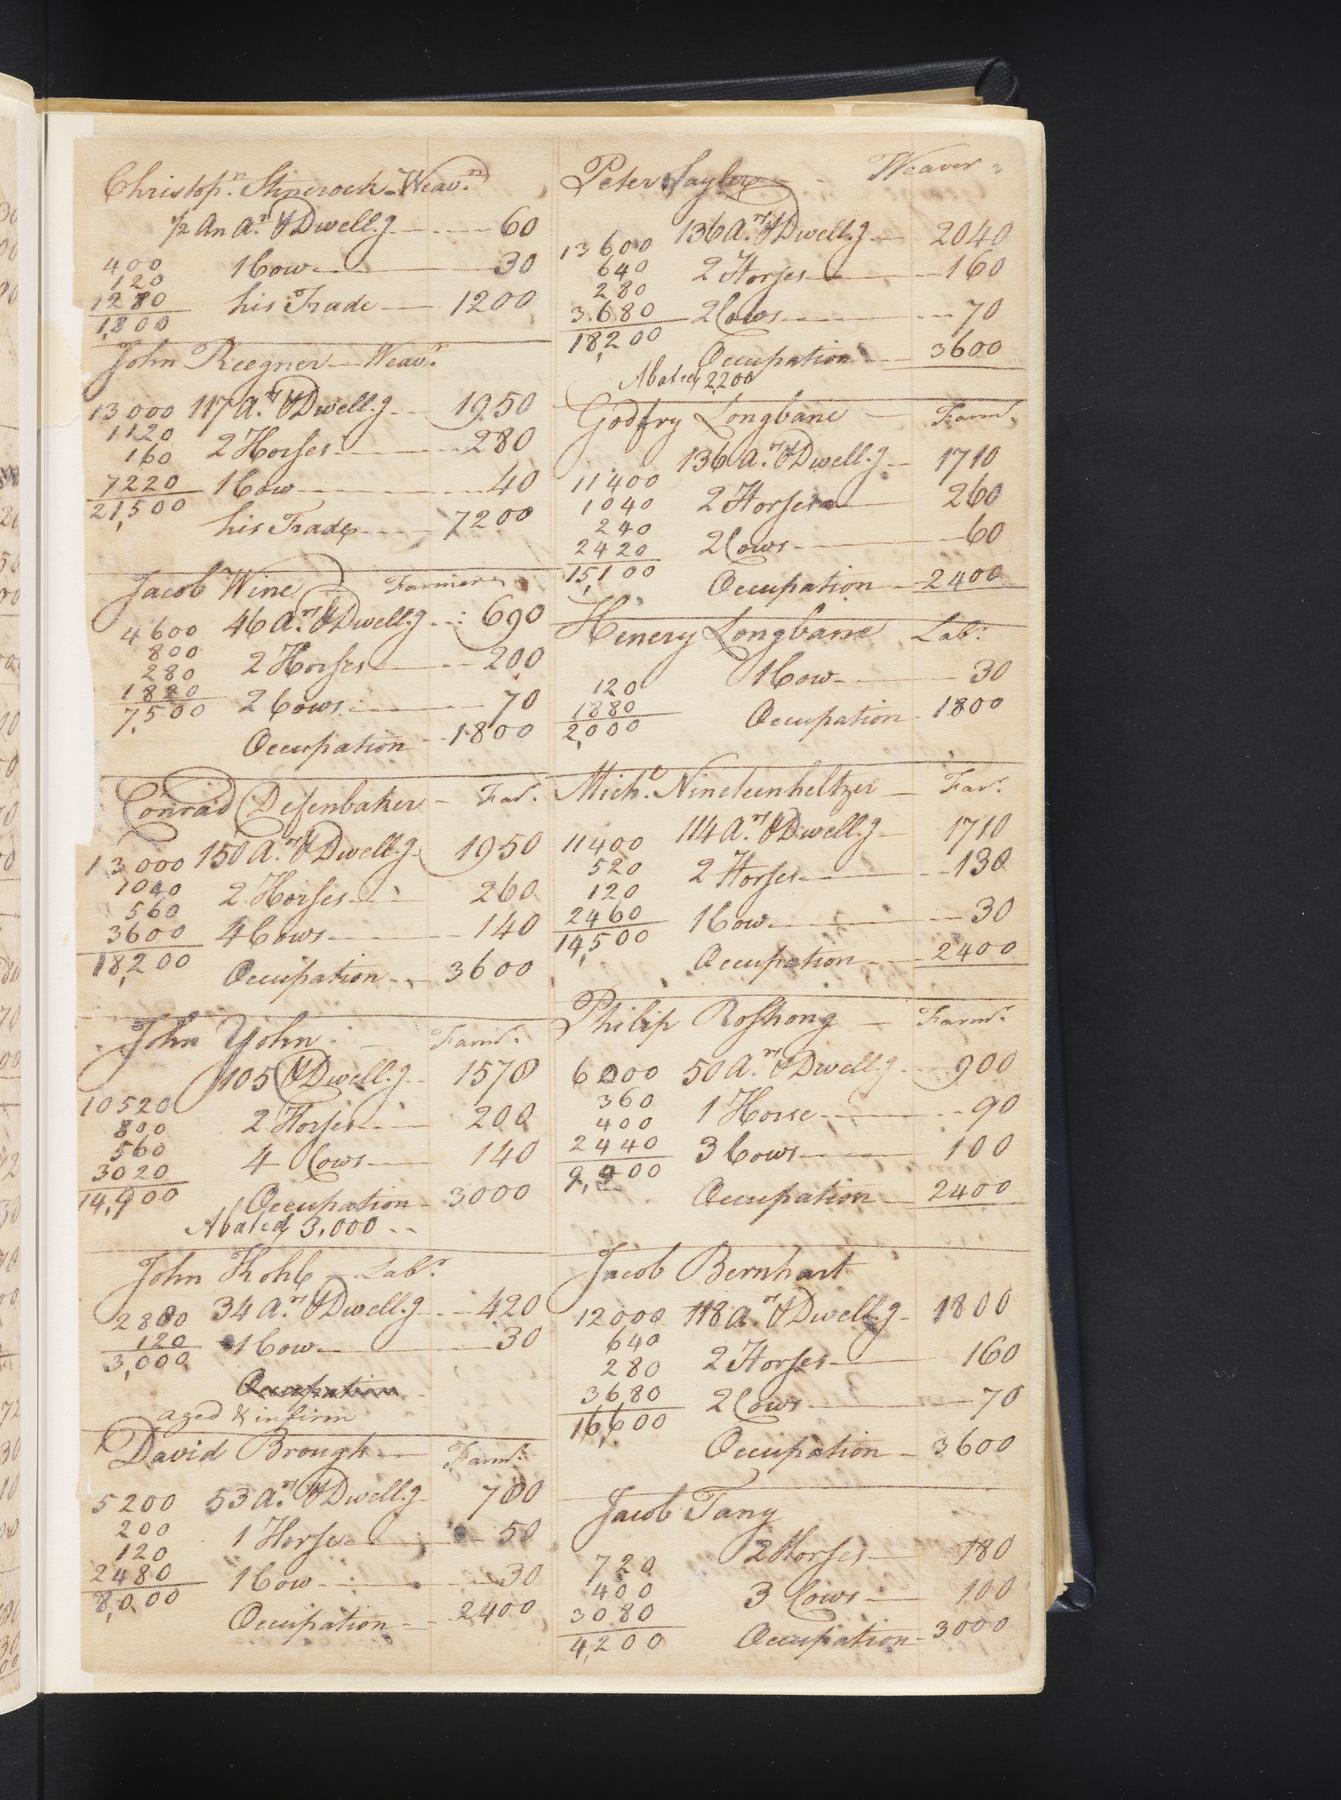 Christop.r Stinerock - Weav.r
1/2 an A.r & Dwell.g 60
400 1 Cow 30
120
1280 his Trade 1200
1,800
John Reegner Weav.r
13000 117 A.rs & Dwell.g 1950
1120
160 2 Horses 280
7220 1 Cow 40
21,500
his Trade 7200
Jacob Wine Farmer
4600 46 A.rs & Dwell.g 690
800
280 2 Horses 200
1820
7,500 2 Cows 70
Occupation 1800
Conrad Defenbaker Far.r
13000 150 A.rs & Dwell.g 1950
1040
560 2 Horses 260
3600 4 Cows 140
18,200
Occupation 3600
John Yohn Farm.r
105 & Dwell.g 1570
10520
800 2 Horses 200
560
3020 4 Cows 140
14,900
Occupation 3000
Abated 3,000
John Kohl Lab.r
2880 34 A.rs & Dwell.g 420
120 1 Cow 30
3,000
Occupation
aged & infirm
David Brough Farm.r
5200 53 A.rs & Dwell.g 780
200
120 1 Horse 50
2480 1 Cow 30
8,000
Occupation 2400
Peter Sayler Weaver
13600 136 A.rs & Dwell.g 2040
640
280 2 Horses 160
3680 2 Cows 70
18,200
Occupation 3600
Abated 2200
Godfry Longbane Farm.r
136 A.rs & Dwell.g 1710
11400
1040 2 Horses 260
240
2420 2 Cows 60
15,100
Occupation 2400
Henery Longbane Lab.r
120 1 Cow 30
1880
2,000 Occupation 1800
Mich.l Nineteenheltzer Far.r
11400 114 A.rs & Dwell.g 1710
520
120 2 Horses 130
2460 1 Cow 30
14,500
Occupation 2400
Philip Roshong Farm.r
6000 50 A.rs & Dwell.g 900
360
400 1 Horse 90
2440 3 Cows 100
9,200
Occupation 2400
Jacob Bernhart
12000 118 A.rs & Dwell.g 1800
640
280 2 Horses 160
3680 2 Cows 70
16,600
Occupation 3600
Jacob Tany
720 2 Horses 180
400 3 Cows 100
3080
4,200 Occupation 3000